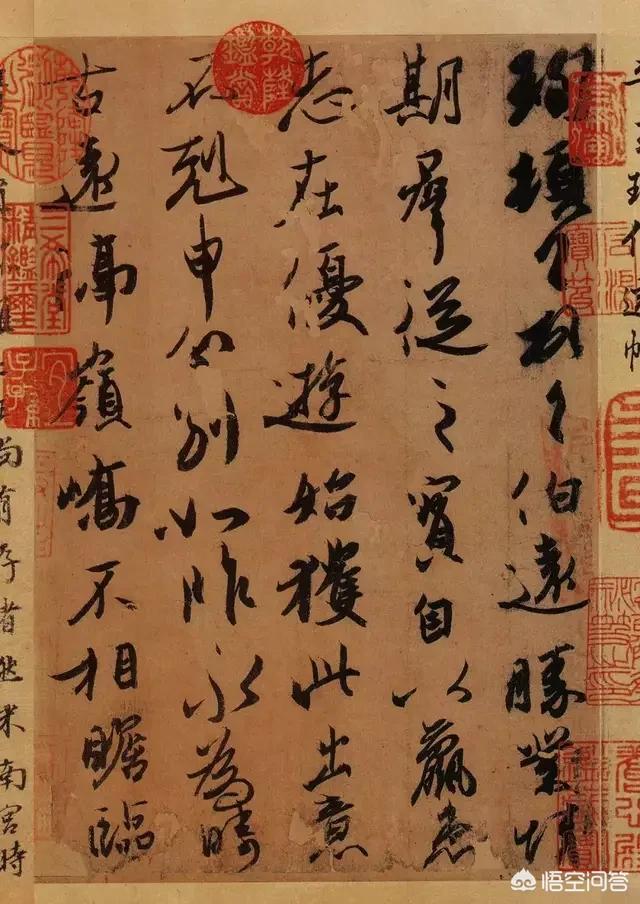 王珣伯遠帖
珣頓首頓首伯遠勝業情
期羣從之寶自以羸患
志在優遊始獲此出意
不剋申分別如昨永為疇
古遠隔嶺嶠不相瞻臨
尚有存者然米南宮時
乾隆鑑賞
三希堂
精鑑璽
宜子孫
悟空问答